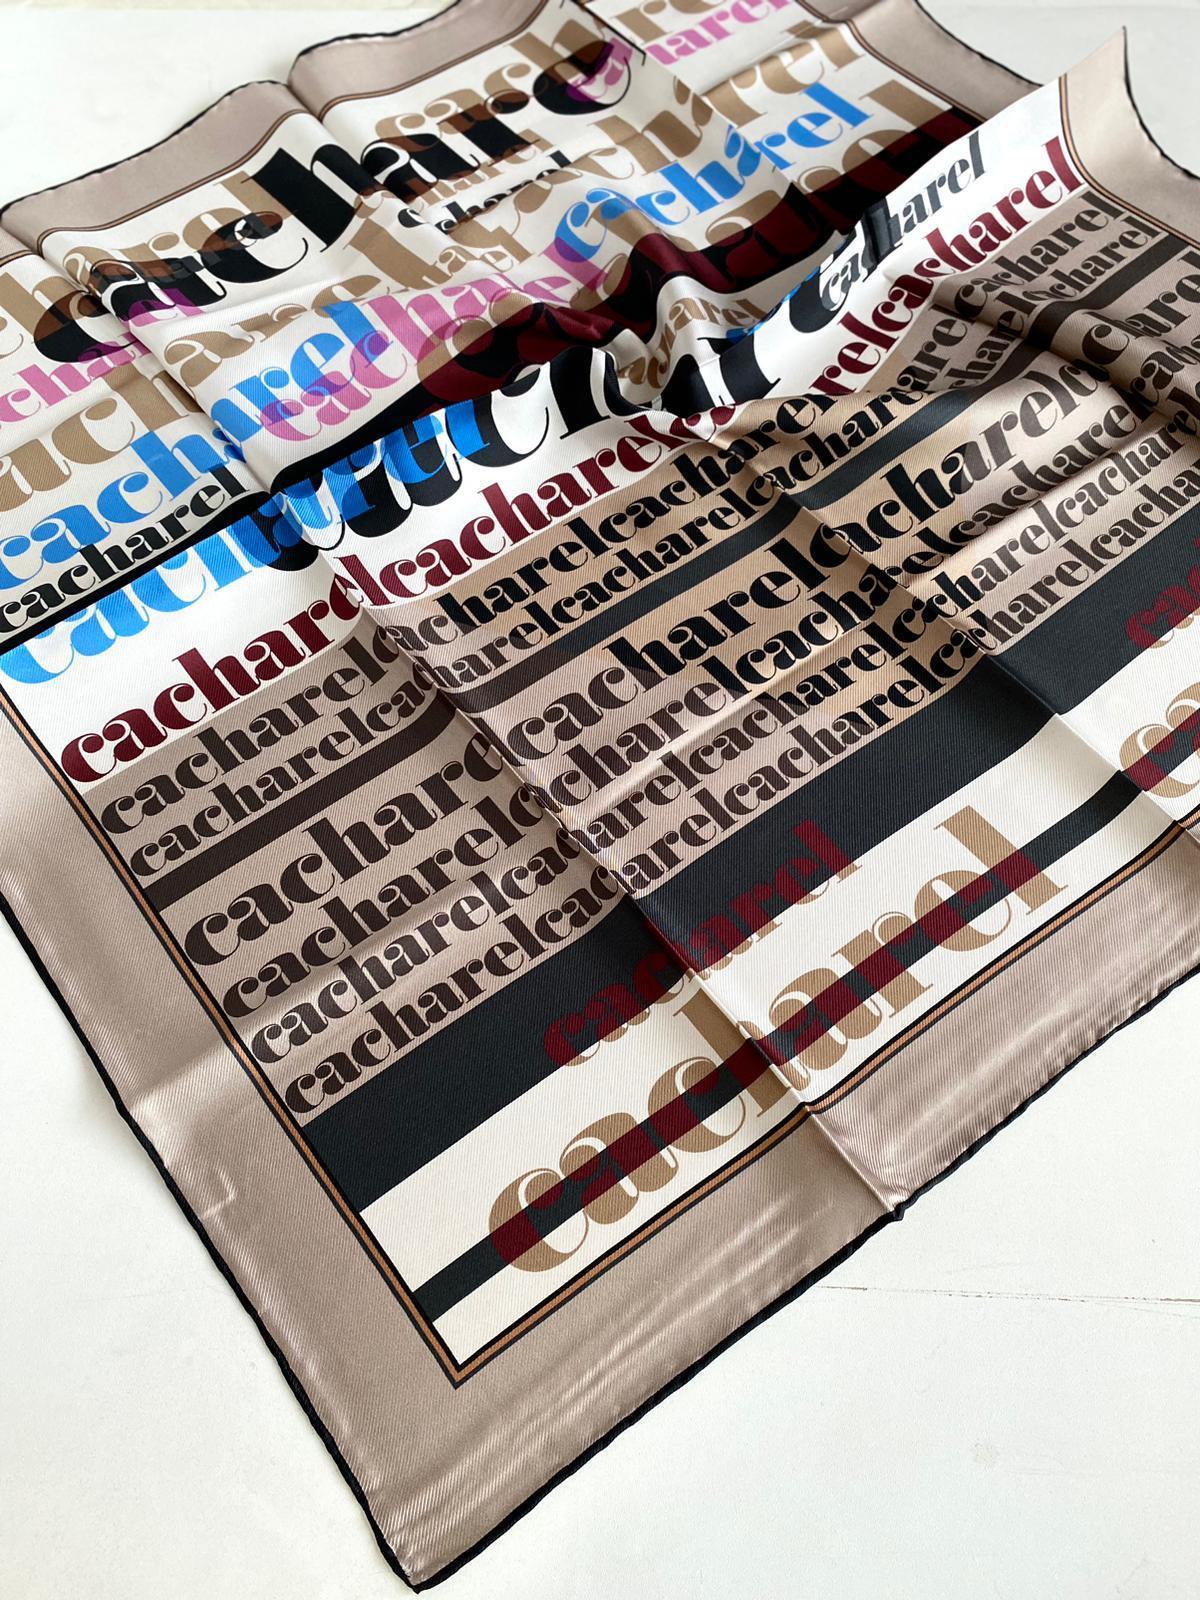 cacharel
cacharel
cacharel
cacharel
cacharel
cacharel
cacharel
cacharel
cacharel
cacharelcacharelcacharel
cacharelcacharelcacharelcacharel
cacharelcacharelcacharelcacharel
cacharelcacharelcacharel
cacharelcacharelcacharel
cacharelcacharelcacharelcacharel
cacharelcacharelcacharelcacharel
cacharel
cacharel